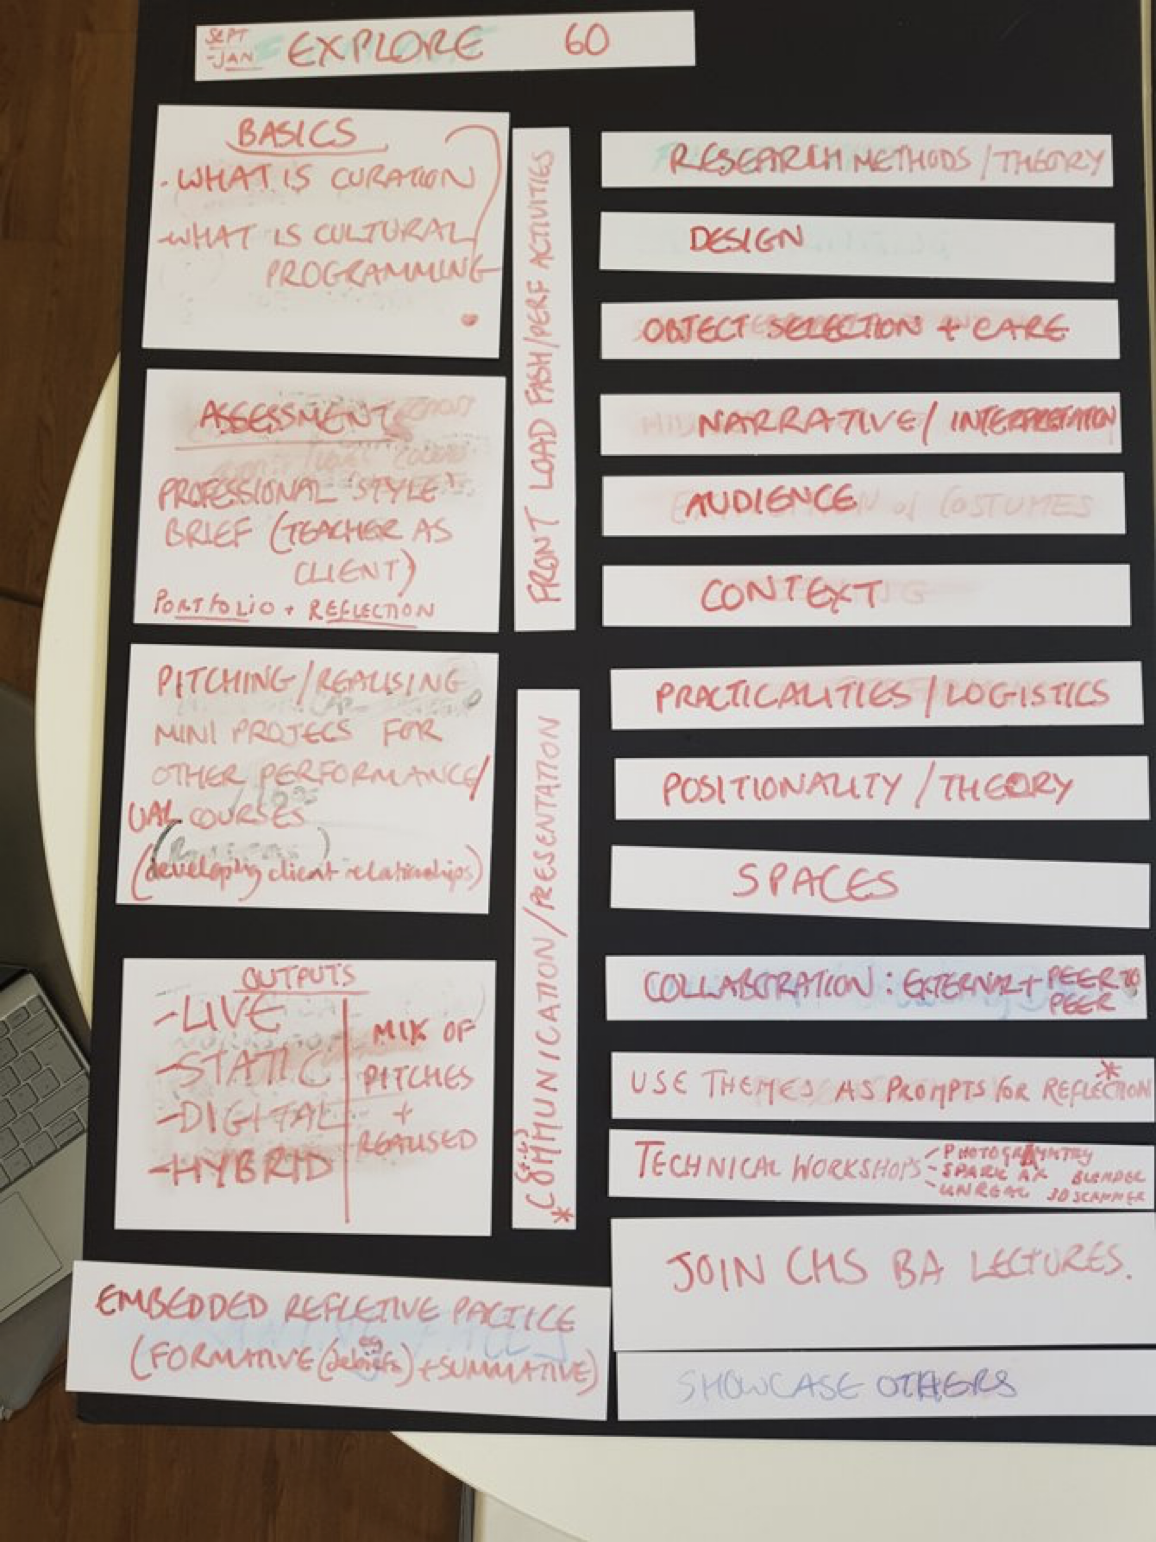 SEPT
-JAN
EXPLORE 60
BASICS
- WHAT IS CURATION
- WHAT IS CULTURAL
PROGRAMMING
ASSESSMENT
PROFESSIONAL 'STYLE'
BRIEF (TEACHER AS
CLIENT)
PORTFOLIO + REFLECTION
PITCHING/REALISING
MINI PROJECS FOR
OTHER PERFORMANCE/
UAL COURSES
(developing client relationships)
OUTPUTS
-LIVE
-STATIC
-DIGITAL
-HYBRID
MIX OF
PITCHES
+
REALISED
EMBEDDED REFLETIVE PACTICE
(FORMATIVE (eg debriefs) + SUMMATIVE)
FRONT LOAD FASH/PERF ACTIVITIES
* COMMUNICATION/PRESENTATION
RESEARCH METHODS / THEORY
DESIGN
OBJECT SELECTION + CARE
NARRATIVE/ INTERPRETATION
AUDIENCE
OF COSTUMES
CONTEXT
PRACTICALITIES / LOGISTICS
POSITIONALITY / THEORY
SPACES
COLLABORATION : EXTERNAL + PEER TO
PEER
USE THEMES AS PROMPTS FOR REFLECTION *
TECHNICAL WORKSHOPS
- PHOTOGRAMMTRY
- SPARK AR BLENDER
- UNREAL 3D SCANNER
JOIN CHS BA LECTURES.
SHOWCASE OTHERS